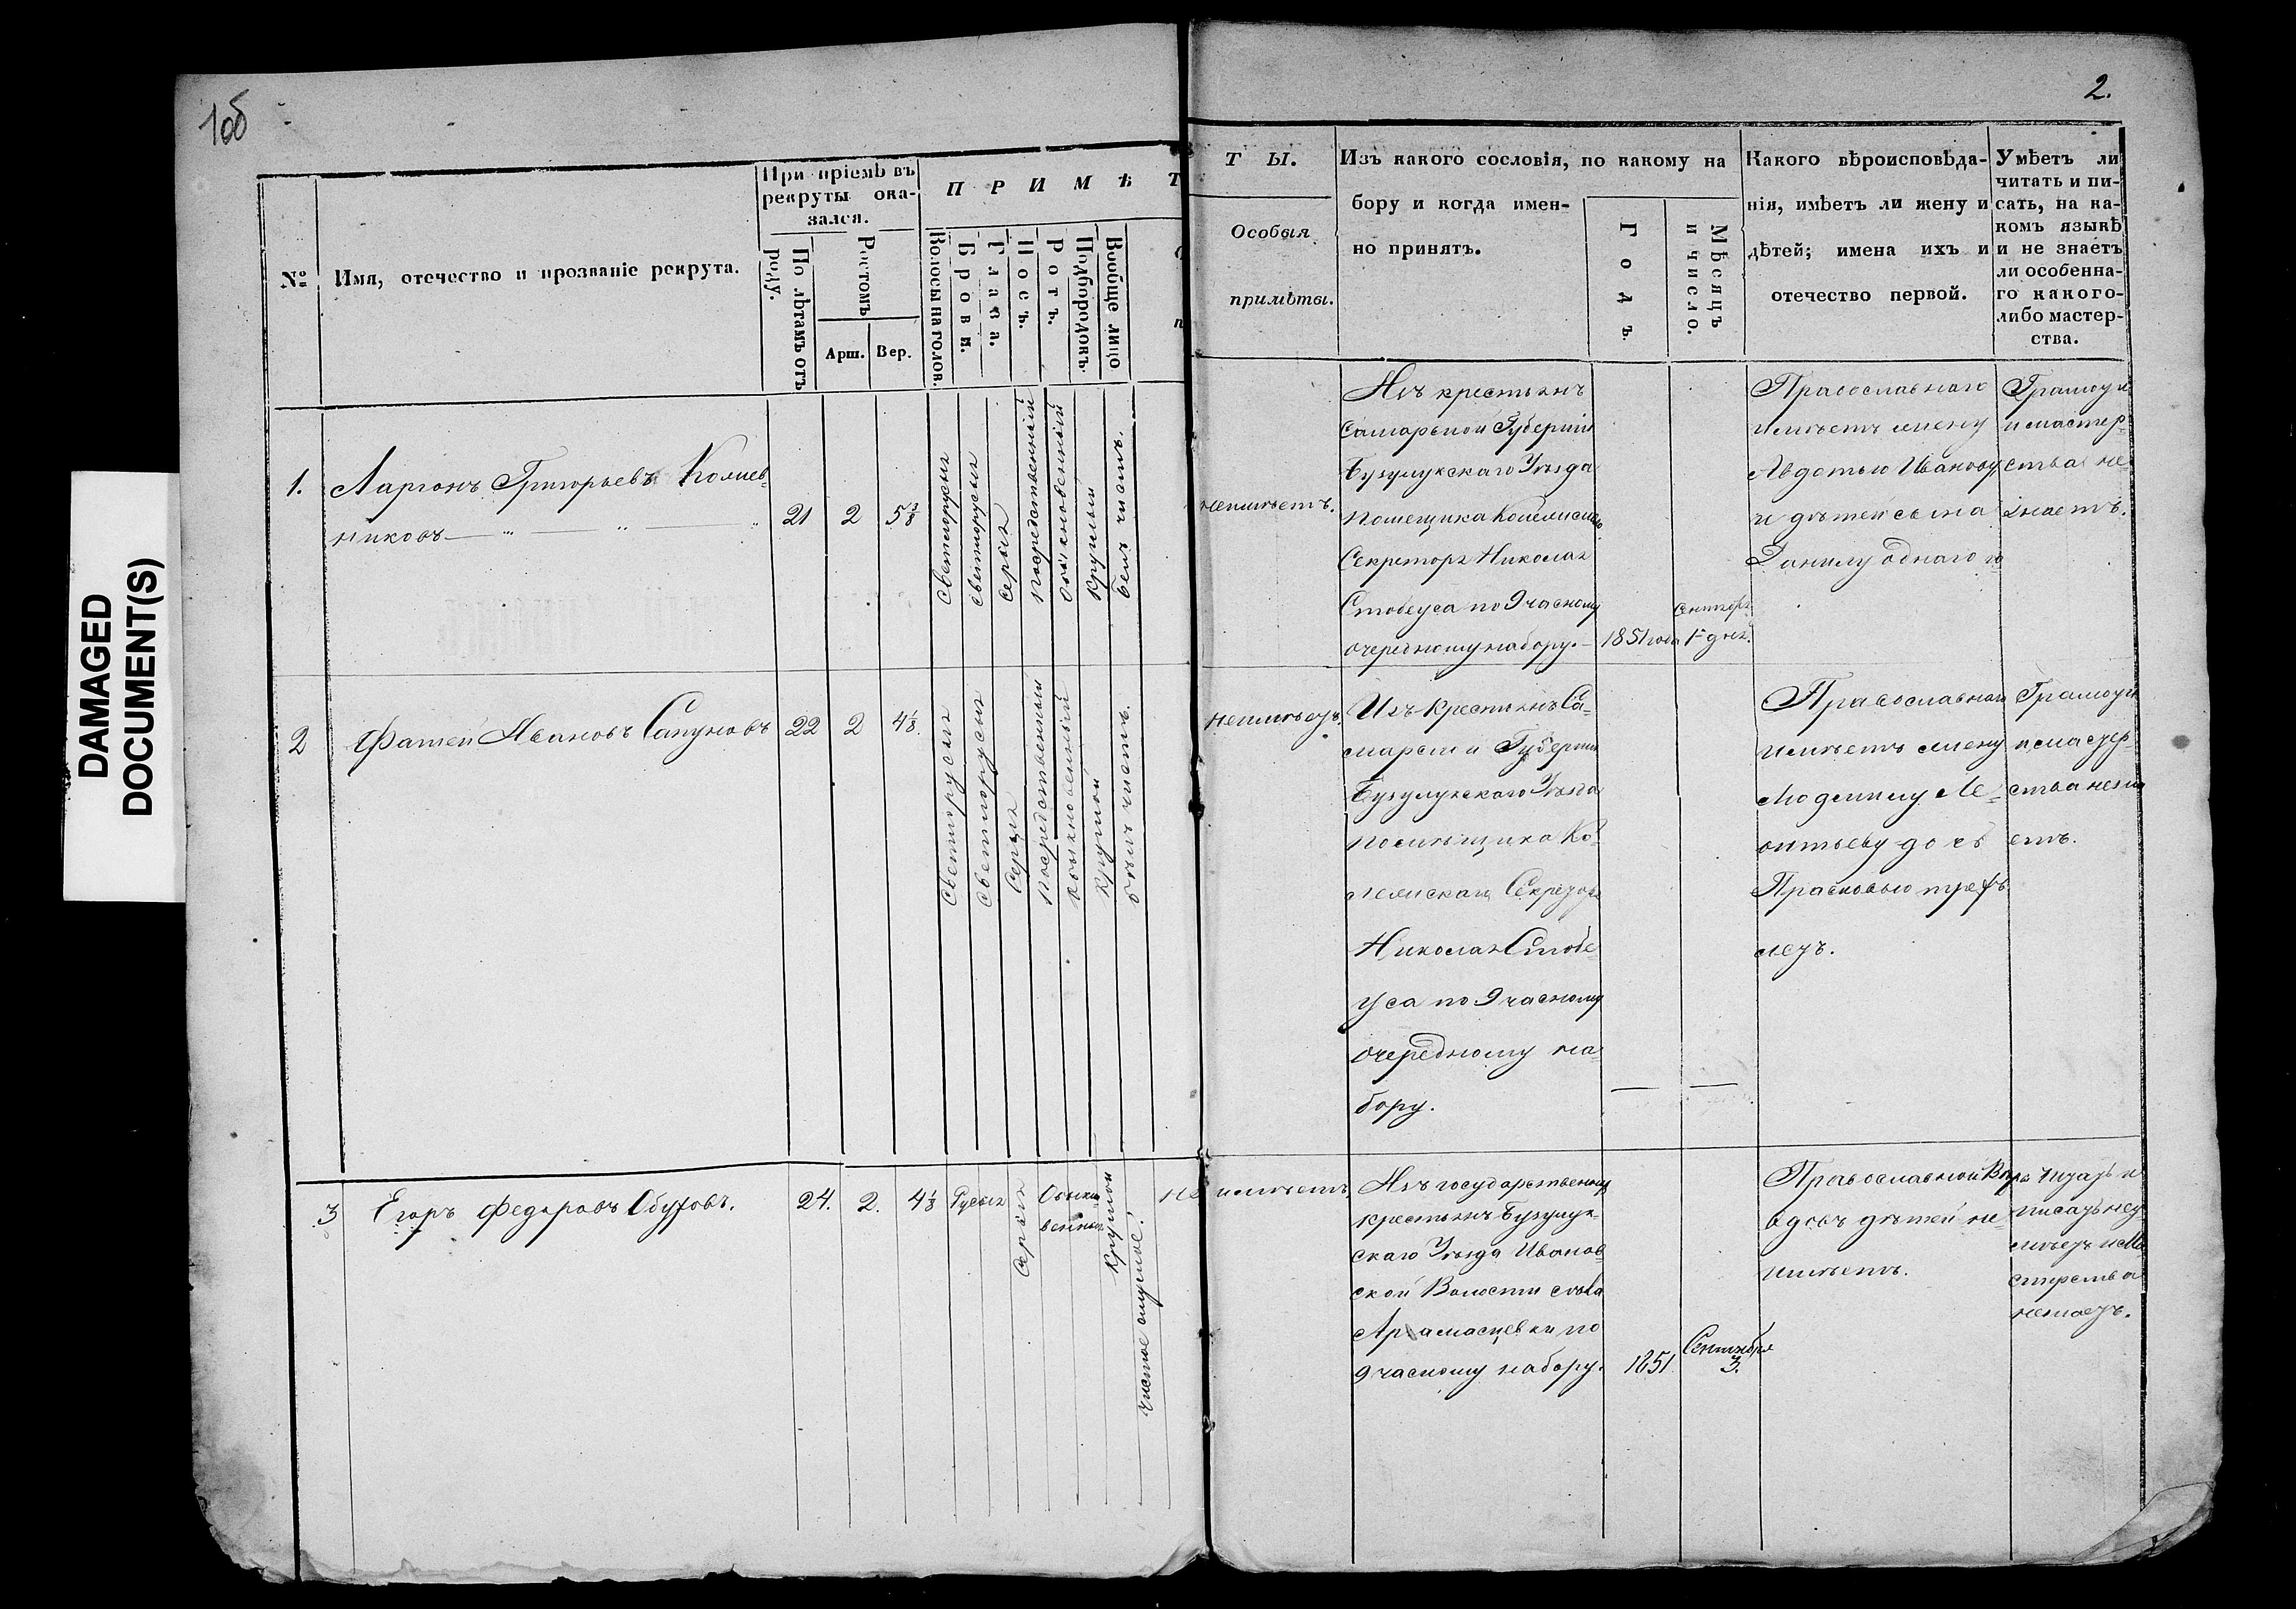 1об
2.
DAMAGED
DOCUMENT(S)
№
Имя, отечество и прозваніе рекрута.
При пріемѣ въ
рекруты ока-
зался.
По лѣтамъ отъ
роду.
Ростомъ
Арш.
Вер.
ПРИМѢТ
Волосы на голов.
Брови.
Глаза.
Носъ.
Ротъ.
Подбородокъ.
Вообще лицо
ТЫ.
Особыя
примѣты.
Изъ какого сословія, по какому на
бору и когда имен-
но принятъ.
Годъ.
Мѣсяцъ
и число.
Какого вѣроисповѣда-
нія, имѣетъ ли жену и
дѣтей; имена ихъ и
отечество первой.
Умѣетъ ли
читать и пи-
сать, на ка-
комъ языкѣ
и не знаетъ
ли особенна-
го какого-
либо мастер-
ства.
1.
Ларіонъ Григорьевъ
никовъ
21
2
5 3/8
светлорусыя
светлорусыя
серыя
посредственный
обыкновенный
круглый
белъ чистъ.
неимѣетъ.
Изъ крестьянъ
Самарской Губерніи
Бузулукскаго Уѣзда
помещика
Секретаря Николая
Стобеуса по 9 часному
очередному набору.
1851 года
Сентяб.
1 дня.
Православнаго
имѣетъ жену
Авдотью Иванову
и дѣтей сына
Данилу однаго го
Грамоты
и мастер-
ства не
знаетъ.
2
Фатей Ивановъ Сапуновъ
22
2
4 1/8.
Светлорусыя
Светлорусыя
Серыя
посредственный
круглой
бѣлъ чистъ.
неимѣетъ.
Изъ Крестьянъ Са-
марской Губерніи
Бузулукскаго Уѣзда
помѣщика Ко-
лежскаго Секретаря
Николая Стобе
уса по 9 часному
очередному на-
бору.
Православнаго
имѣетъ жену
Людмилу Ле-
онтьеву дочь
Прасковью трехъ
летъ.
Грамоты
и мастер-
ства незна
етъ.
3
Егоръ Федоровъ Обуховъ.
24.
2.
4 1/8
Русыя
Серыя
Обыкно
венныя
круглой
чистое смуглое.
не имѣетъ
Изъ государственныхъ
крестьянъ Бузулук-
скаго Уѣзда Иванов
ской Волости села
Арзамасцевки по
9 часному набору.
1851
Сентября
3.
Православной Вѣры
вдовъ дѣтей не
имѣетъ.
Читать и
писать неу-
мѣетъ и Ма-
стерства
незнаетъ.